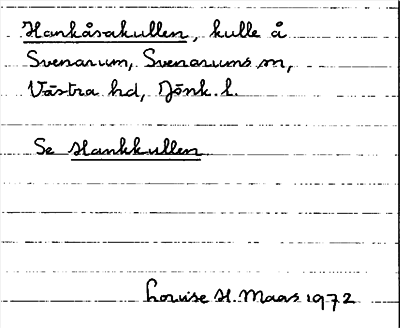 Hankåsakullen, kulle å
Svenarum, Svenarums sn,
Västra hd, Jönk. l.
Se Hankkullen
Louise H. Maas 1972